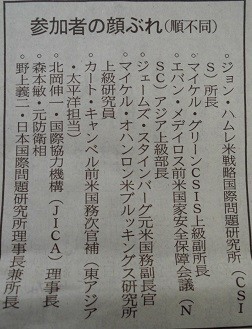 参加者の顔ぶれ（順不同）
◦ジョン・ハムレ米戦略国際問題研究所（CSI
S）所長
◦マイケル・グリーンCSIS上級副所長
◦エバン・メデイロス前米国家安全保障会議（N
SC）アジア上級部長
◦ジェームズ・スタインバーグ元米国務副長官
◦マイケル・オハンロン米ブルッキングス研究所
上級研究員
◦カート・キャンベル前米国務次官補（東アジア
・太平洋担当）
◦北岡伸一・国際協力機構（JICA）理事長
◦森本敏・元防衛相
◦野上義二・日本国際問題研究所理事長兼所長